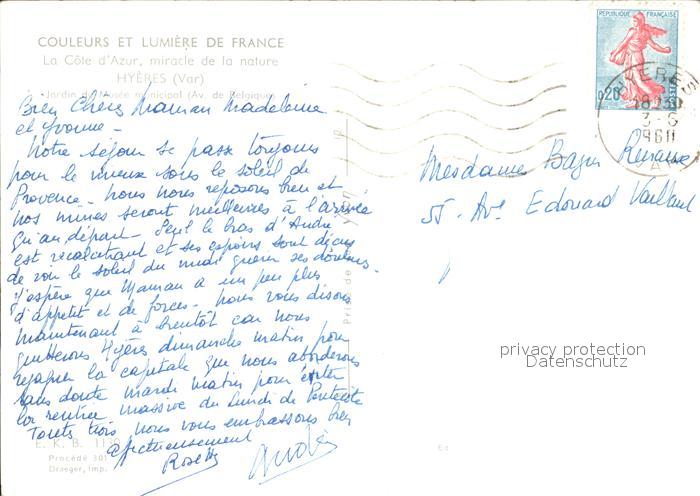 COULEURS ET LUMIÈRE DE FRANCE
La Côte d'Azur, miracle de la nature
HYÈRES (Var)
Jardin du Musée municipal (Av. de Belgique)
Bien Chères Maman Madeleine
et Yvonne -
Notre séjour se passe toujours
pour le mieux sous le soleil de
Provence - nous nous reposons bien et
nos mines seront meilleures à l'arrivée
qu'au départ - Seul le bras d'André
est recalcitrant et ses espoirs sont déçus
de voir le soleil du midi guérir ses douleurs.
J'espère que Maman a un peu plus
d'appetit et de forces - nous vous disons
maintenant à bientôt car nous
quitterons Hyères dimanche matin pour
regagner la capitale que nous aborderons
sans doute mardi matin pour éviter
la rentrée massive du Lundi de Pentecôte
Toutes trois nous vous embrassons bien
affectueusement
Rosette André
E. K. B. 1130
Procédé 301
Draeger, imp.
REPUBLIQUE FRANÇAISE
0,20
HYERES
18 H 30
3-6
1960
VAR
Mesdames
55 Ave Edouard Vaillant
privacy protection
Datenschutz